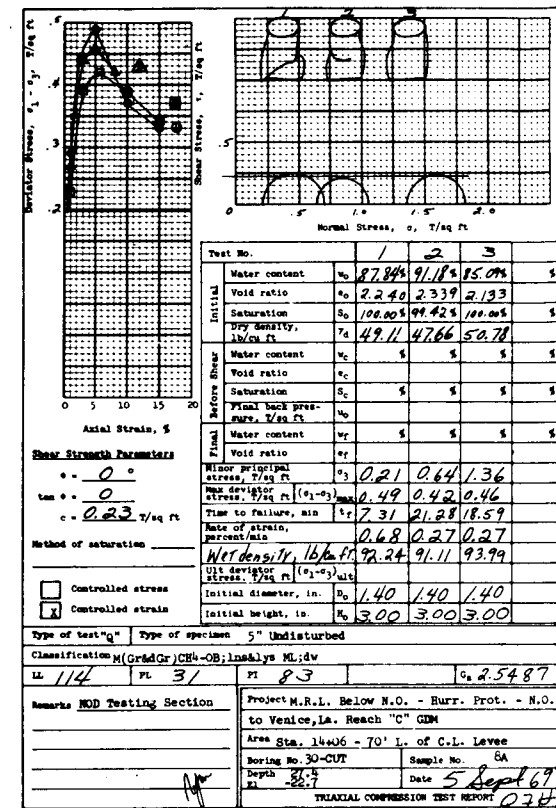 1 2 3
Deviator Stress, σ1 - σ3, T/sq ft
Shear Stress, τ, T/sq ft
.5
.4
.3
.2
.5
0 5 10 15 20
Axial Strain, %
0 .5 1.0 1.5 2.0
Normal Stress, σ, T/sq ft
Shear Strength Parameters
φ = 0 °
tan φ = 0
c = 0.23 T/sq ft
Method of saturation
Controlled stress
X Controlled strain
Test No. 1 2 3
Initial
Water content w₀ 87.84% 91.18% 85.09% %
Void ratio e₀ 2.240 2.339 2.133
Saturation S₀ 100.00% 99.42% 100.00% %
Dry density, lb/cu ft γd 49.11 47.66 50.78
Before Shear
Water content wc % % % %
Void ratio ec
Saturation Sc % % % %
Final back pressure, T/sq ft u₀
Final
Water content wf % % % %
Void ratio ef
Minor principal stress, T/sq ft σ3 0.21 0.64 1.36
Max deviator stress, T/sq ft (σ1-σ3)max 0.49 0.42 0.46
Time to failure, min tf 7.31 21.28 18.59
Rate of strain, percent/min 0.68 0.27 0.27
Wet density, lb/cu ft. 92.24 91.11 93.99
Ult deviator stress, T/sq ft (σ1-σ3)ult
Initial diameter, in. D₀ 1.40 1.40 1.40
Initial height, in. H₀ 3.00 3.00 3.00
Type of test "Q" Type of specimen 5" Undisturbed
Classification M(Gr&dGr)CH4-OB;lns&lys ML;dw
LL 114 PL 31 PI 83 Gs 2.5487
Remarks NOD Testing Section
Project M.R.L. Below N.O. - Hurr. Prot. - N.O.
to Venice,La. Reach "C" GDM
Area Sta. 14+06 - 70' L. of C.L. Levee
Boring No. 30-CUT Sample No. 8A
Depth El -22.7 Date 5 Sept 69
TRIAXIAL COMPRESSION TEST REPORT